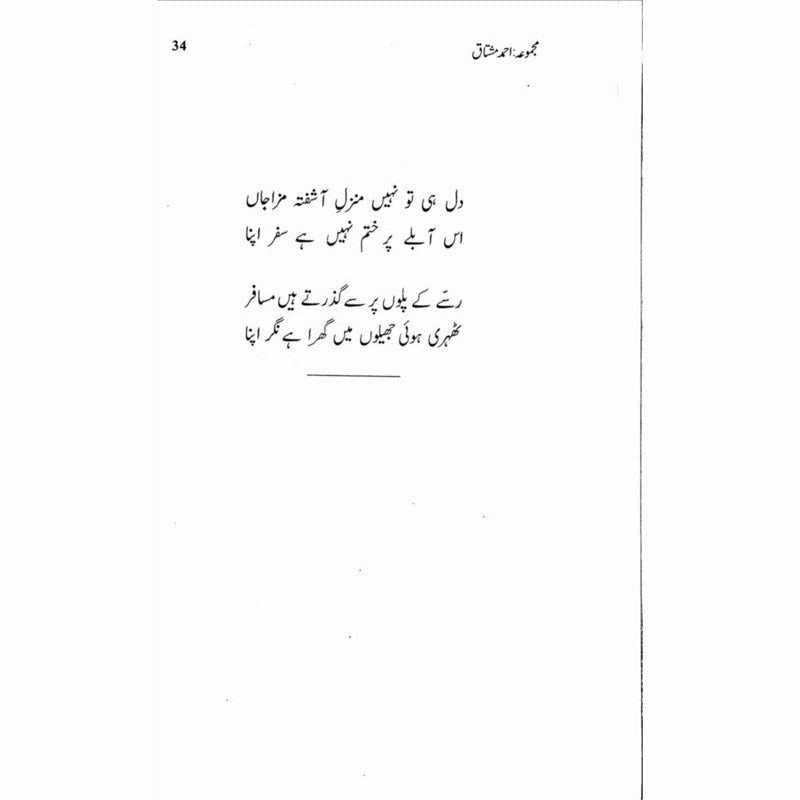 34
مجموعہ: احمد مشتاق
دل ہی تو نہیں منزلِ آشفتہ مزاجاں
اس آبلے پر ختم نہیں ہے سفر اپنا
رسّے کے پلوں پر سے گذرتے ہیں مسافر
ٹھہری ہوئی جھیلوں میں گھرا ہے نگر اپنا